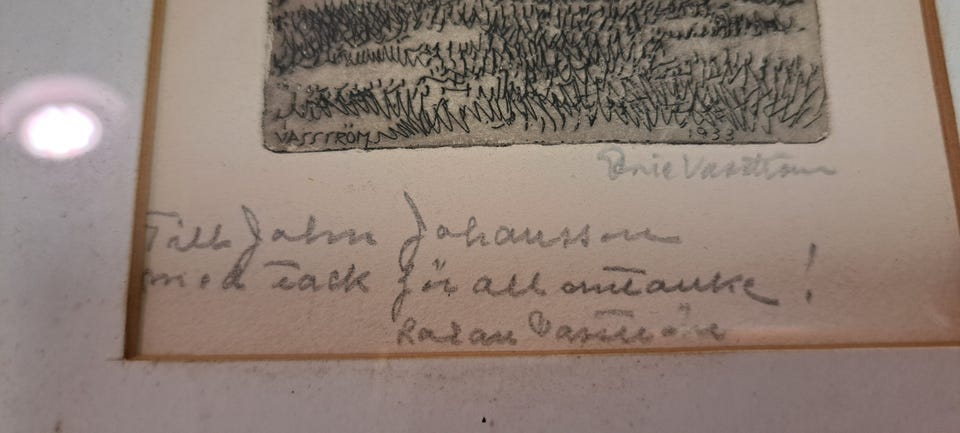 VASSTRÖM
1933
Eric Vasström
Till John Johansson
med tack för all omtanke!